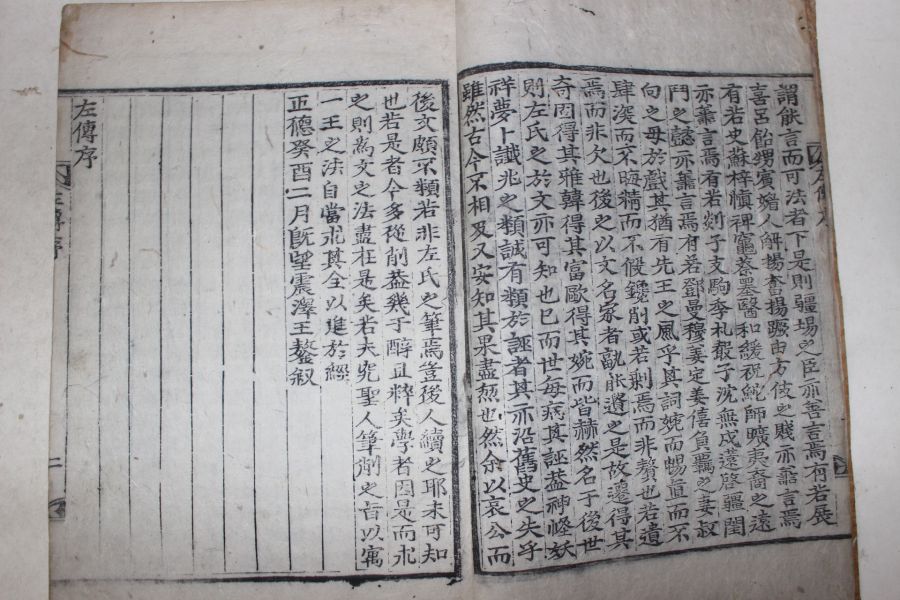 謂能言而可法者下是則疆埸之臣亦善言焉有若展
喜呂飴甥賓媚人解揚奮揚蹶由方伎之賤亦善言焉
有若史蘇梓慎裨竈蔡墨醫和緩祝鮀師曠夷裔之遠
亦善言焉有若郯子支駒季札聲子沈無戍薳啓疆閨
門之懿亦善言焉有若鄧曼穆姜定姜僖負羈之妻叔
向之母於戲其猶有先王之風乎其詞婉而暢直而不
肆深而不晦精而不假鑱削或若剩焉而非贅也若遺
焉而非欠也後之以文名家者孰能遺之是故遷得其
奇固得其雅韓得其富歐得其婉而皆赫然名于後世
則左氏之於文亦可知也已而世每病其誣蓋神怪妖
祥夢卜讖兆之類誠有類於誣者其亦沿舊史之失乎
雖然古今不相及又安知其果盡無也然余以哀公而
後文頗不類若非左氏之筆焉豈後人續之耶未可知
也若是者今多從削蓋幾于醇且粹矣學者因是而求
之則爲文之法盡在是矣若夫究聖人筆削之旨以寓
一王之法自當求其全以進於經
正德癸酉二月既望震澤王鏊叙
左傳序
左傳序
二